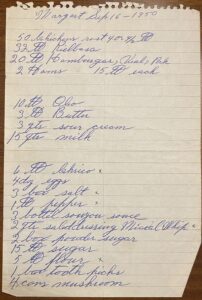 Margart Sep 16 - 1950
50 lb chickens rost 40 ¢ lb
32 lb kielbasa
20 lb Hamburger,
2 Hams 15 lb each
10 lb Oleo
3 lb Butter
3 qts sour cream
15 qts milk
6 lb
4 dz eggs
3 box salt
1 lb pepper
3 bottl some
2 qts saladdressing Miracal Whip
2 box powder sugar
15 lb sugar
5 lb flour
1 box tooth picks
4 cans mushroom